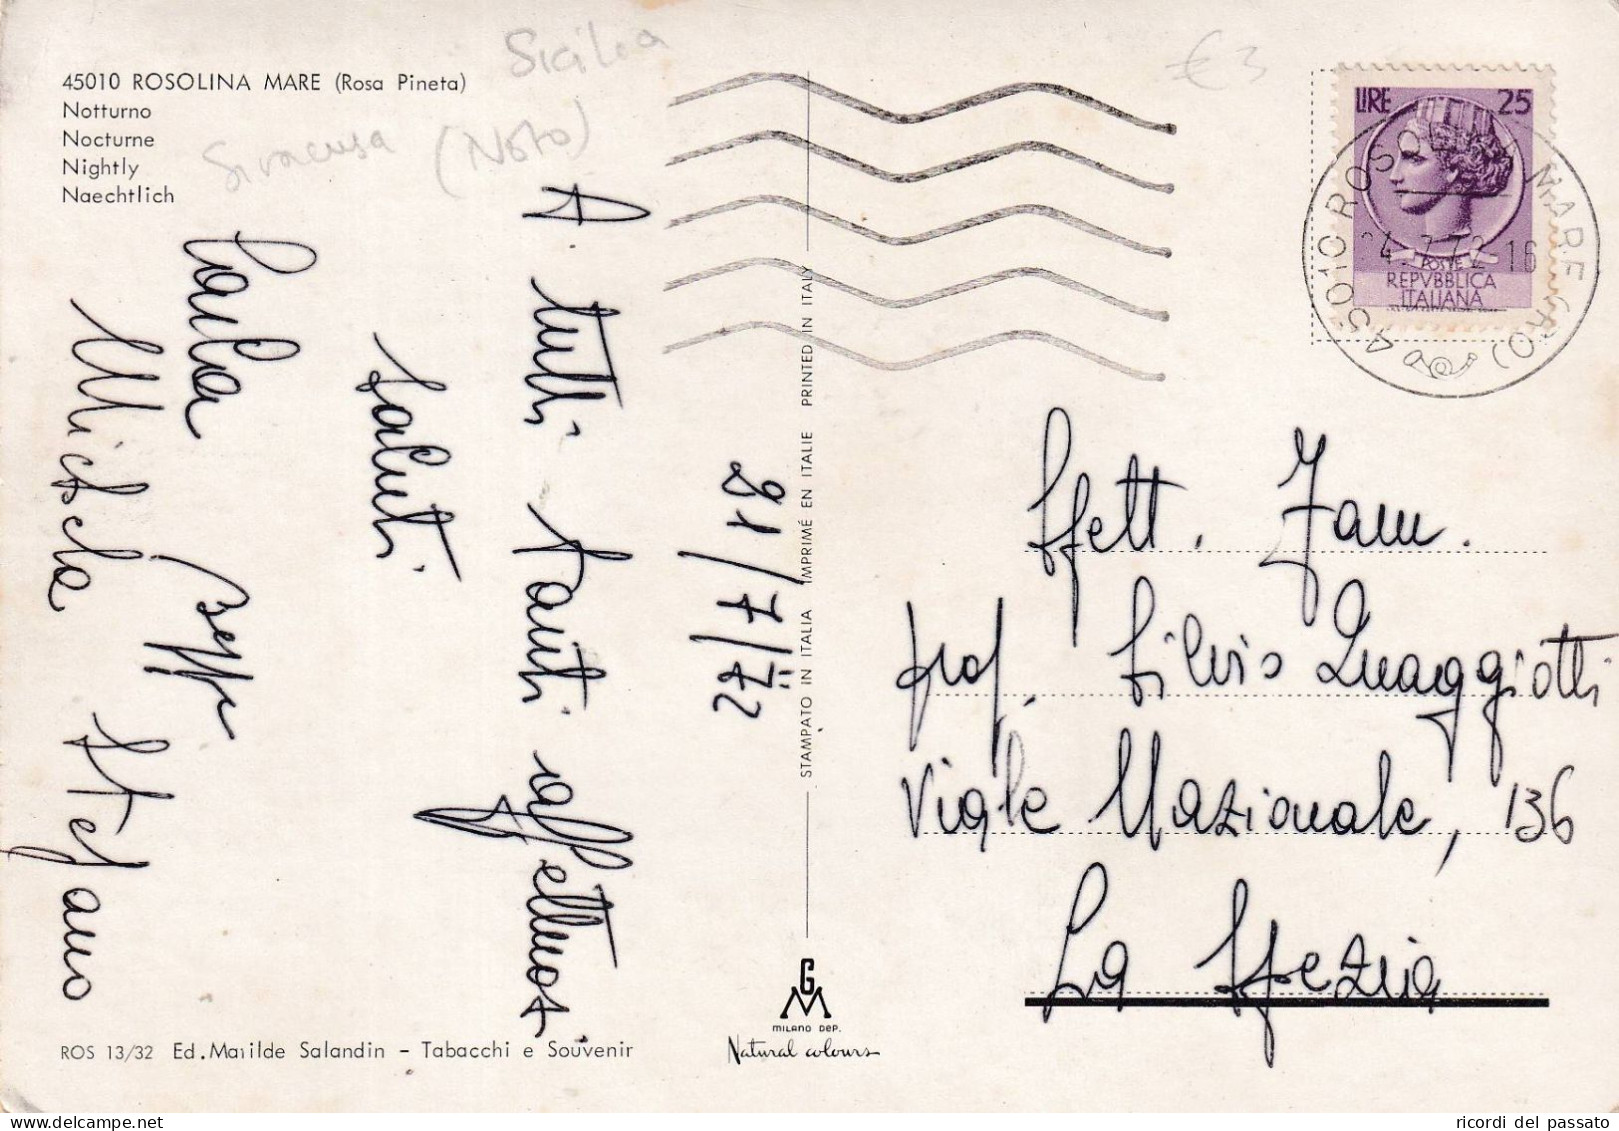 45010 ROSOLINA MARE (Rosa Pineta)
Notturno
Nocturne
Nightly
Naechtlich
Sicilia
Siracusa (Noto)
€ 3
LIRE 25
POSTE
REPVBBLICA
ITALIANA
45010 ROSOLINA MARE (RO)
24.7.72.16
21/7/72
A tutti tanti affettuosi
saluti
Carla Beppe
Michele Stefano
STAMPATO IN ITALIA IMPRIMÉ EN ITALIE PRINTED IN ITALY
Spett. Fam.
prof. Silvio Quaggiotti
Viale Nazionale, 136
La Spezia
GM
MILANO DEP.
Natural colours
ROS 13/32 Ed. Matilde Salandin - Tabacchi e Souvenir
ricordi del passato